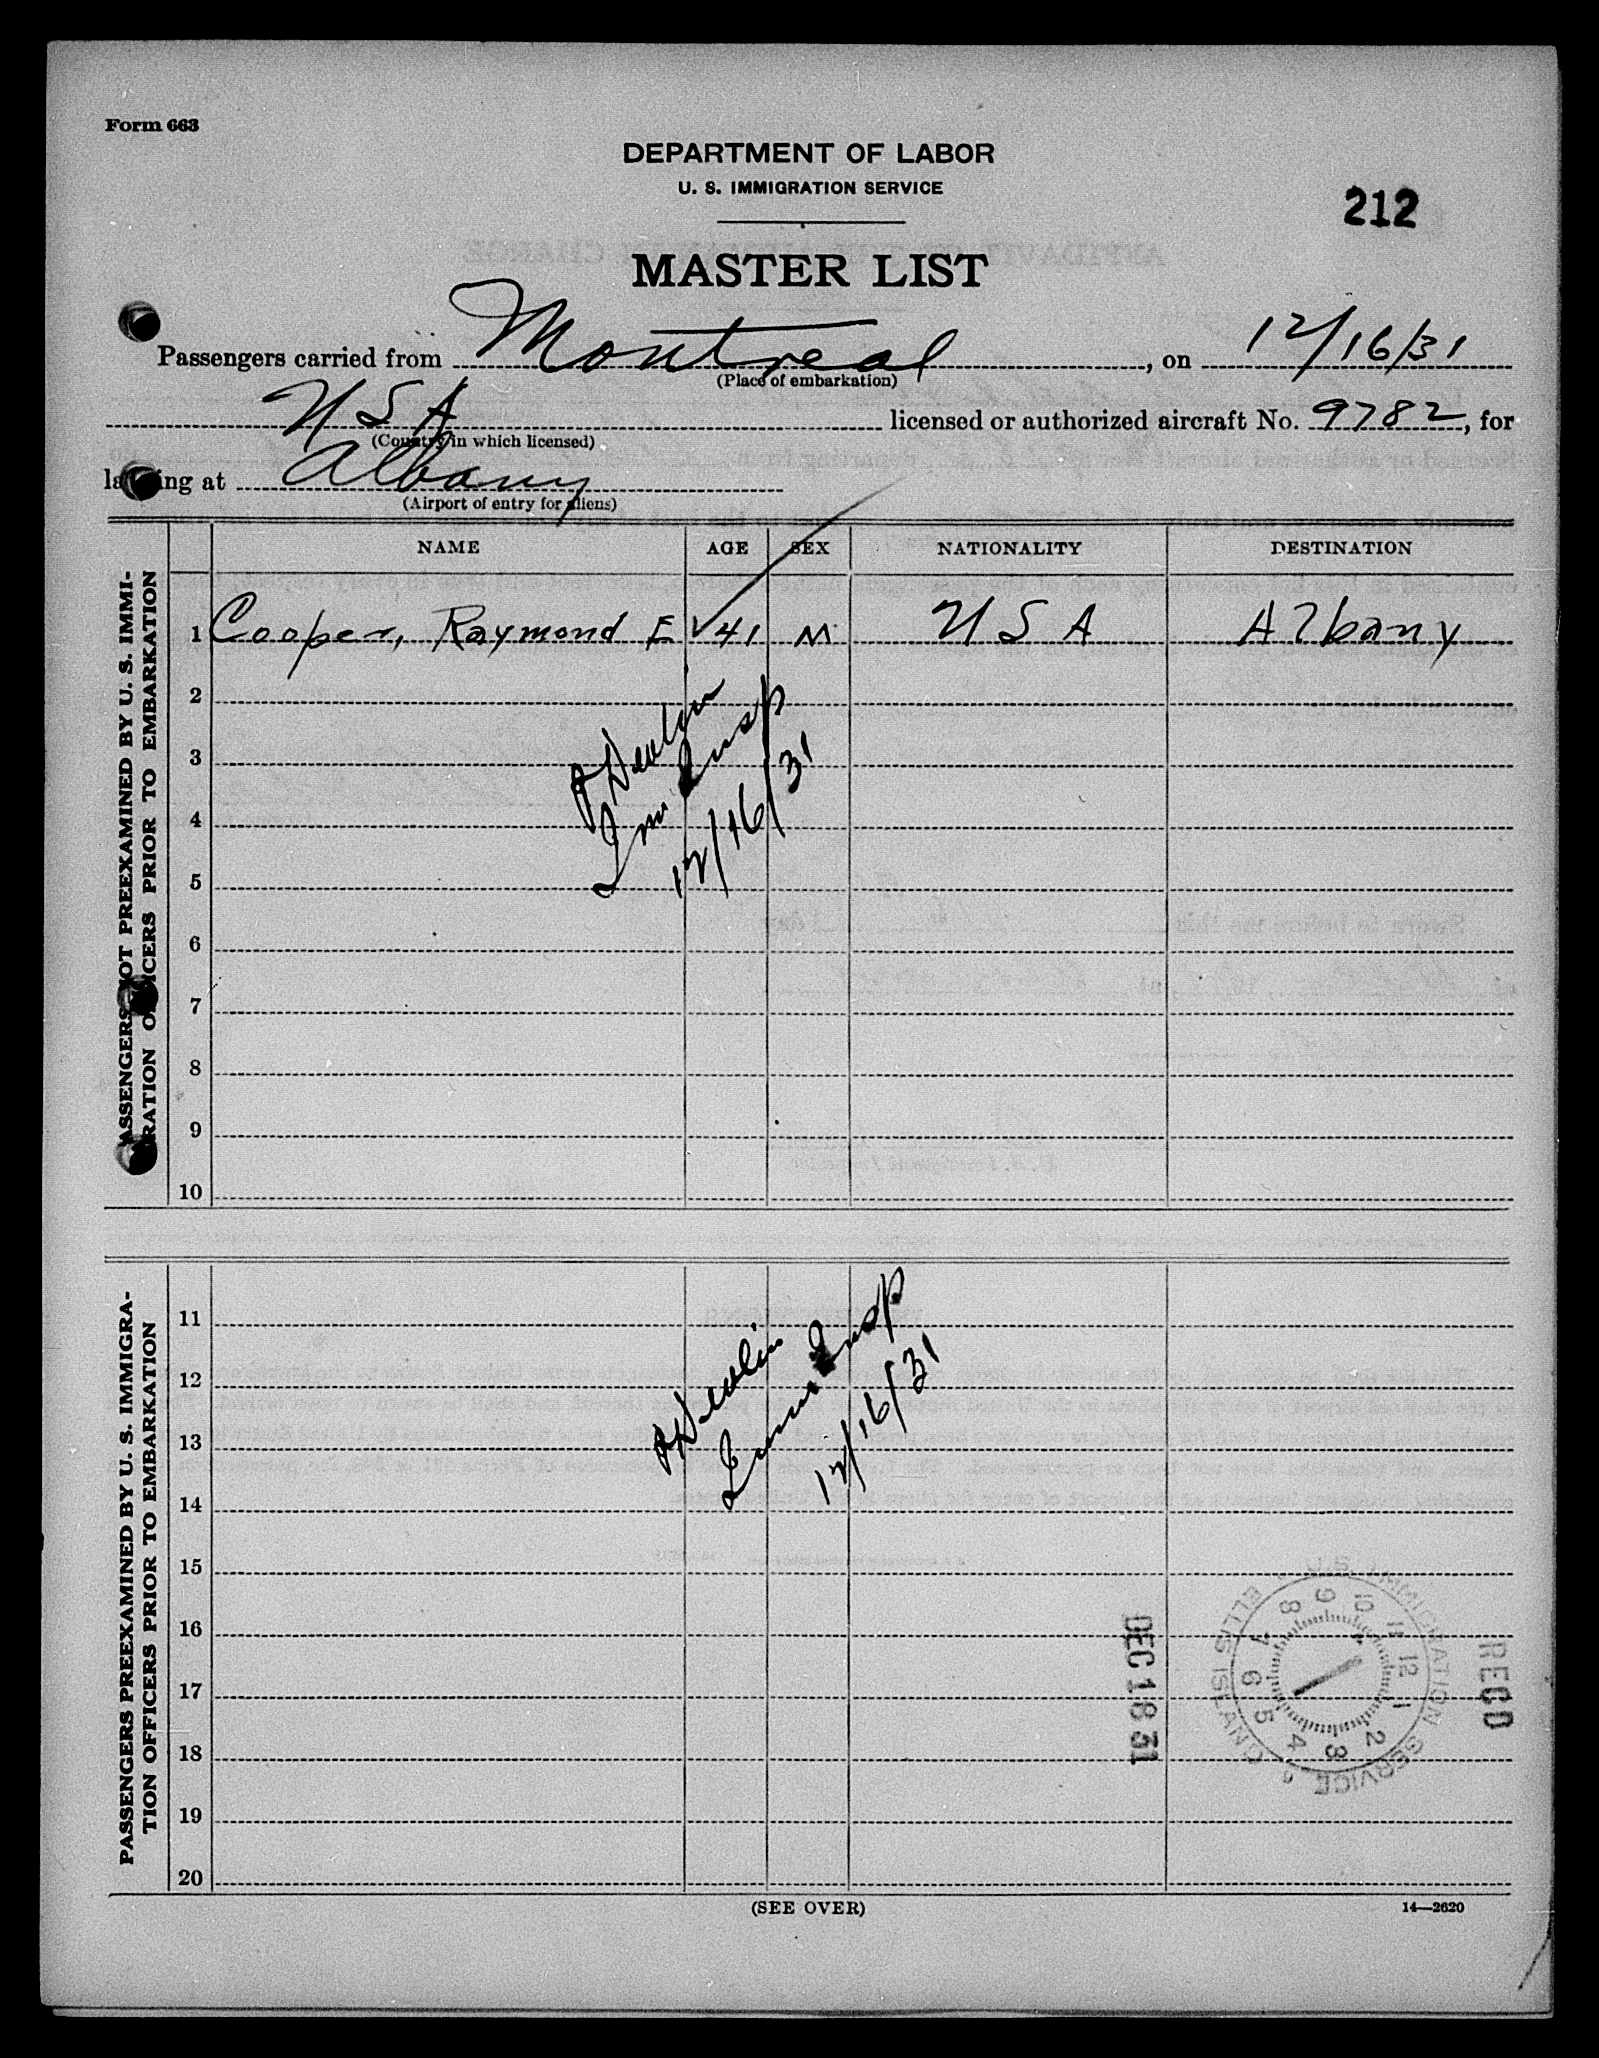 Form 663
DEPARTMENT OF LABOR
U. S. IMMIGRATION SERVICE
212
MASTER LIST
Passengers carried from Montreal, on 12/16/31
(Place of embarkation)
USA licensed or authorized aircraft No. 9782, for
(Country in which licensed)
landing at Albany
(Airport of entry for aliens)
NAME AGE SEX NATIONALITY DESTINATION
PASSENGERS NOT PREEXAMINED BY U. S. IMMI-
GRATION OFFICERS PRIOR TO EMBARKATION
1 Cooper, Raymond E ✓ 41 M USA Albany
2
3
4
5
6
7
8
9
10
Devlin
Im Insp
12/16/31
PASSENGERS PREEXAMINED BY U. S. IMMIGRA-
TION OFFICERS PRIOR TO EMBARKATION
11
12
13
14
15
16
17
18
19
20
Devlin
Imm Insp
12/16/31
DEC 18 31
U.S. IMMIGRATION SERVICE
ELLIS ISLAND
1 2 3 4 5 6 7 8 9 10 11 12
RECD
(SEE OVER)
14—2620